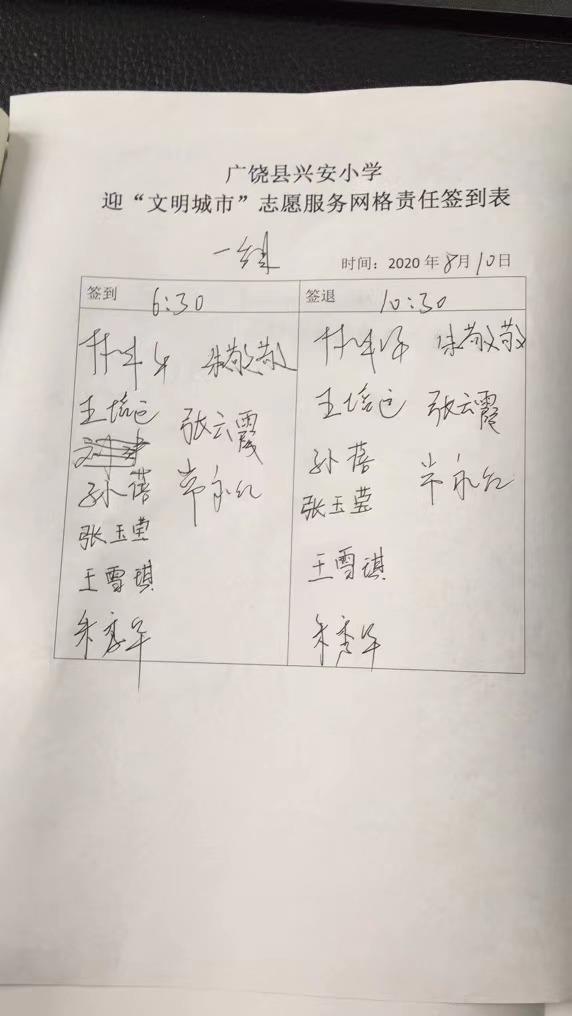 广饶县兴安小学
迎“文明城市”志愿服务网格责任签到表
一组
时间：2020年8月10日
签到 6:30
签退 10:30
朱敬敬
朱敬敬
王培
张云霞
王培
张云霞
孙蓓
常永红
孙蓓
常永红
张玉莹
张玉莹
王雪琪
王雪琪
朱秀军
朱秀军